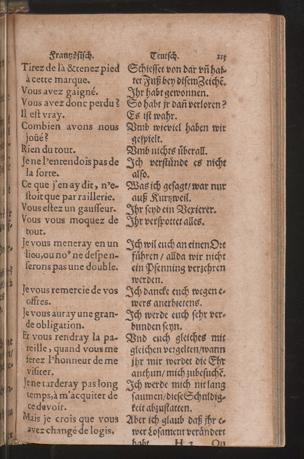 Frantzösisch. Teutsch. 215
Tirez de là & tenez pied
à cette marque.
Vous avez gaigné.
Vous avez donc perdu?
Il est vray.
Combien avons nous
joüé?
Rien du tout.
Je ne l'entendois pas de
la sorte.
Ce que j'en ay dit, n'e-
stoit que par raillerie.
Vous estez un gausseur.
Vous vous moquez de
tout.
Je vous meneray en un
liou, ou no⁹ ne despen-
serons pas une double.
Je vous remercie de vos
offres.
Je vous auray une gran-
de obligation.
Et vous rendray la pa-
reille, quand vous me
ferez l'honneur de me
visiter.
Je ne tarderay pas long
temps, à m'acquiter de
ce devoir.
Mais je crois que vous
avez changé de logis.
Schiesset von dar uñ hal-
tet Fuß bey disem Zeichē.
Ihr habt gewonnen.
So habt jr dañ verloren?
Es ist wahr.
Umb wieviel haben wir
gespielt.
Umb nichts überall.
Ich verstünde es nicht
also.
Was ich gesagt/ war nur
auß Kurtzweil.
Ihr seyd ein Vexierer.
Ihr verspottet alles.
Ich wil euch an einen Ort
führen/ allda wir nicht
ein Pfenning verzehren
werden.
Ich dancke euch wegen e-
wers anerbietens.
Ich werde euch sehr ver-
bunden seyn.
Und euch gleiches mit
gleichen vergelten/ wann
ihr mir werdet die Ehr
anthun/ mich zubesuchē.
Ich werde mich nit lang
saumen/ diese Schuldig-
keit abzustatten.
Aber ich glaub daß ihr e-
wer Losament verändert
habt. H 2 Ou